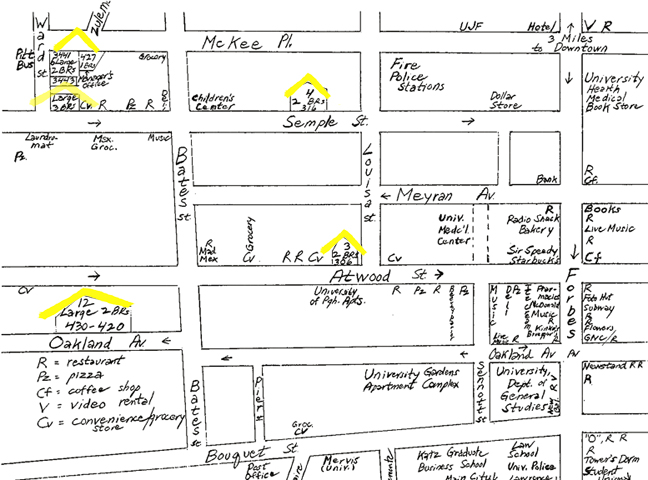 Ward St
Zulema
UJF
Hotel
V R
3 Miles
to Downtown
McKee Pl.
Pitt
Bus
3441
6 Large
2 BRs
3443
Large
2 BRs
427
1 BRs
Manager's
Office
Grocery
Cv R Pz R Deli
Children's
Center
4
2 BRs
316
Fire
Police
Stations
Dollar
Store
University
Health
Medical
Book Store
R
Cf.
Semple St.
Laundro-
mat
Pz.
Mex.
Groc.
Music
Bates St
Louisa St
Bank
Meyran Av.
R
Mad
Mex
Grocery
Cv.
R R Cv
3
2 BRs
306
Cv
Univ.
Medc'l
Center
R
Radio Shack
Bakery
Sir Speedy
Starbucks
Books
R
Live Music
R
Cf
Atwood St
Forbes Av
CV
12
Large 2 BRs
430-420
University
of Pgh. Apts.
R Pz R Pz
Music
McDonald
Music
R
Kinkos
R
Foto Hut
Subway
R
Pioners
GNC/R
Oakland Av.
Oakland Av
R = restaurant
Pz = pizza
Cf = coffee shop
V = video rental
Cv = convenience/grocery
store
Bates St
University Gardens
Apartment Complex
Sennott St
University,
Dept. of
General
Studies
Newstand R R
R
Groc.
CV
Bouquet St
Post
Office
Mervis
(Univ.)
Katz Graduate
Business School
Law
School
Univ. Police
"O", R R
R
Tower's Dorm
Student